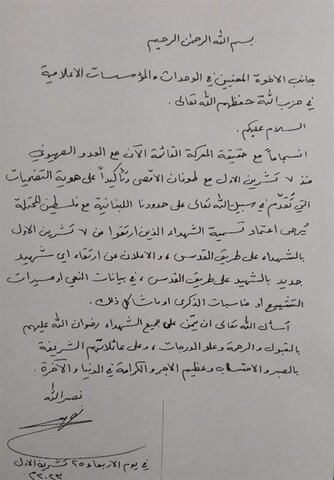 بسم الله الرحمن الرحيم
جانب الاخوة المعنيين في الوحدات والمؤسسات الاعلامية
في حزب الله حفظهم الله تعالى.
السلام عليكم.
انسجاماً مع حقيقة المعركة القائمة الآن مع العدو الصهيوني
منذ ٧ تشرين الاول مع طوفان الأقصى وتأكيداً على هوية التضحيات
التي تُقدَّم في سبيل الله تعالى على حدودنا اللبنانية مع فلسطين المحتلة
يُرجى اعتماد تسمية الشهداء الذين ارتقوا من ٧ تشرين الاول
بالشهداء على طريق القدس، والاعلان عن ارتقاء اي شهيد
جديد بالشهيد على طريق القدس، في بيانات النعي او مسيرات
التشييع او مناسبات الذكرى او ما شاكل ذلك.
أسأل الله تعالى ان يمنّ على جميع الشهداء رضوان الله عليهم
بالقبول والرحمة وعلو الدرجات، وعلى عائلاتهم الشريفة
بالصبر والاحتساب وعظيم الاجر والكرامة في الدنيا والآخرة.
نصر الله
في يوم الاربعاء ٢٥ تشرين الاول
٢٠٢٣ م.